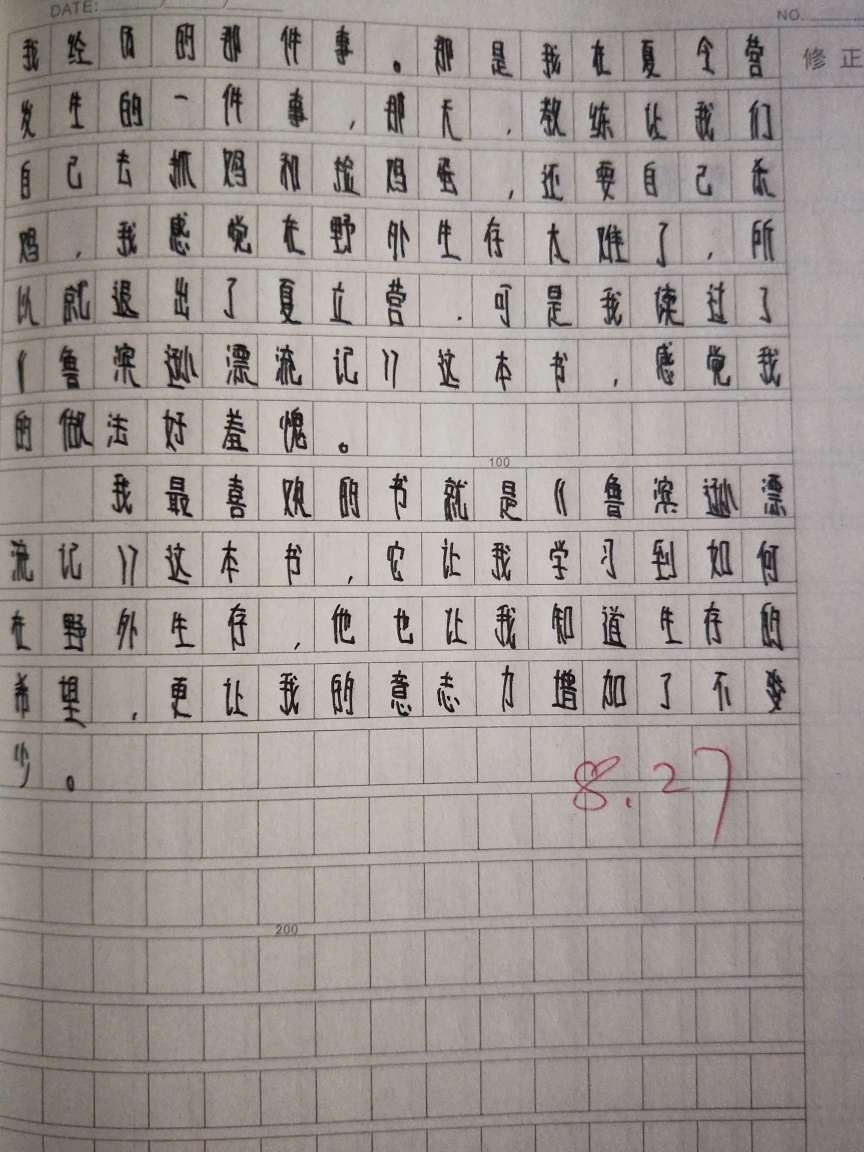 DATE: ____/____/____
NO.
修正
我经历的那件事。那是我在夏令营
发生的一件事，那天，教练让我们
自己去抓鸡和捡鸡蛋，还要自己杀
鸡，我感觉在野外生存太难了，所
以就退出了夏立营，可是我读过了
《鲁滨逊漂流记》这本书，感觉我
的做法好羞愧。
100
我最喜欢的书就是《鲁滨逊漂
流记》这本书，它让我学习到如何
在野外生存，他也让我知道生存的
希望，更让我的意志力增加了不
少。
8.27
200